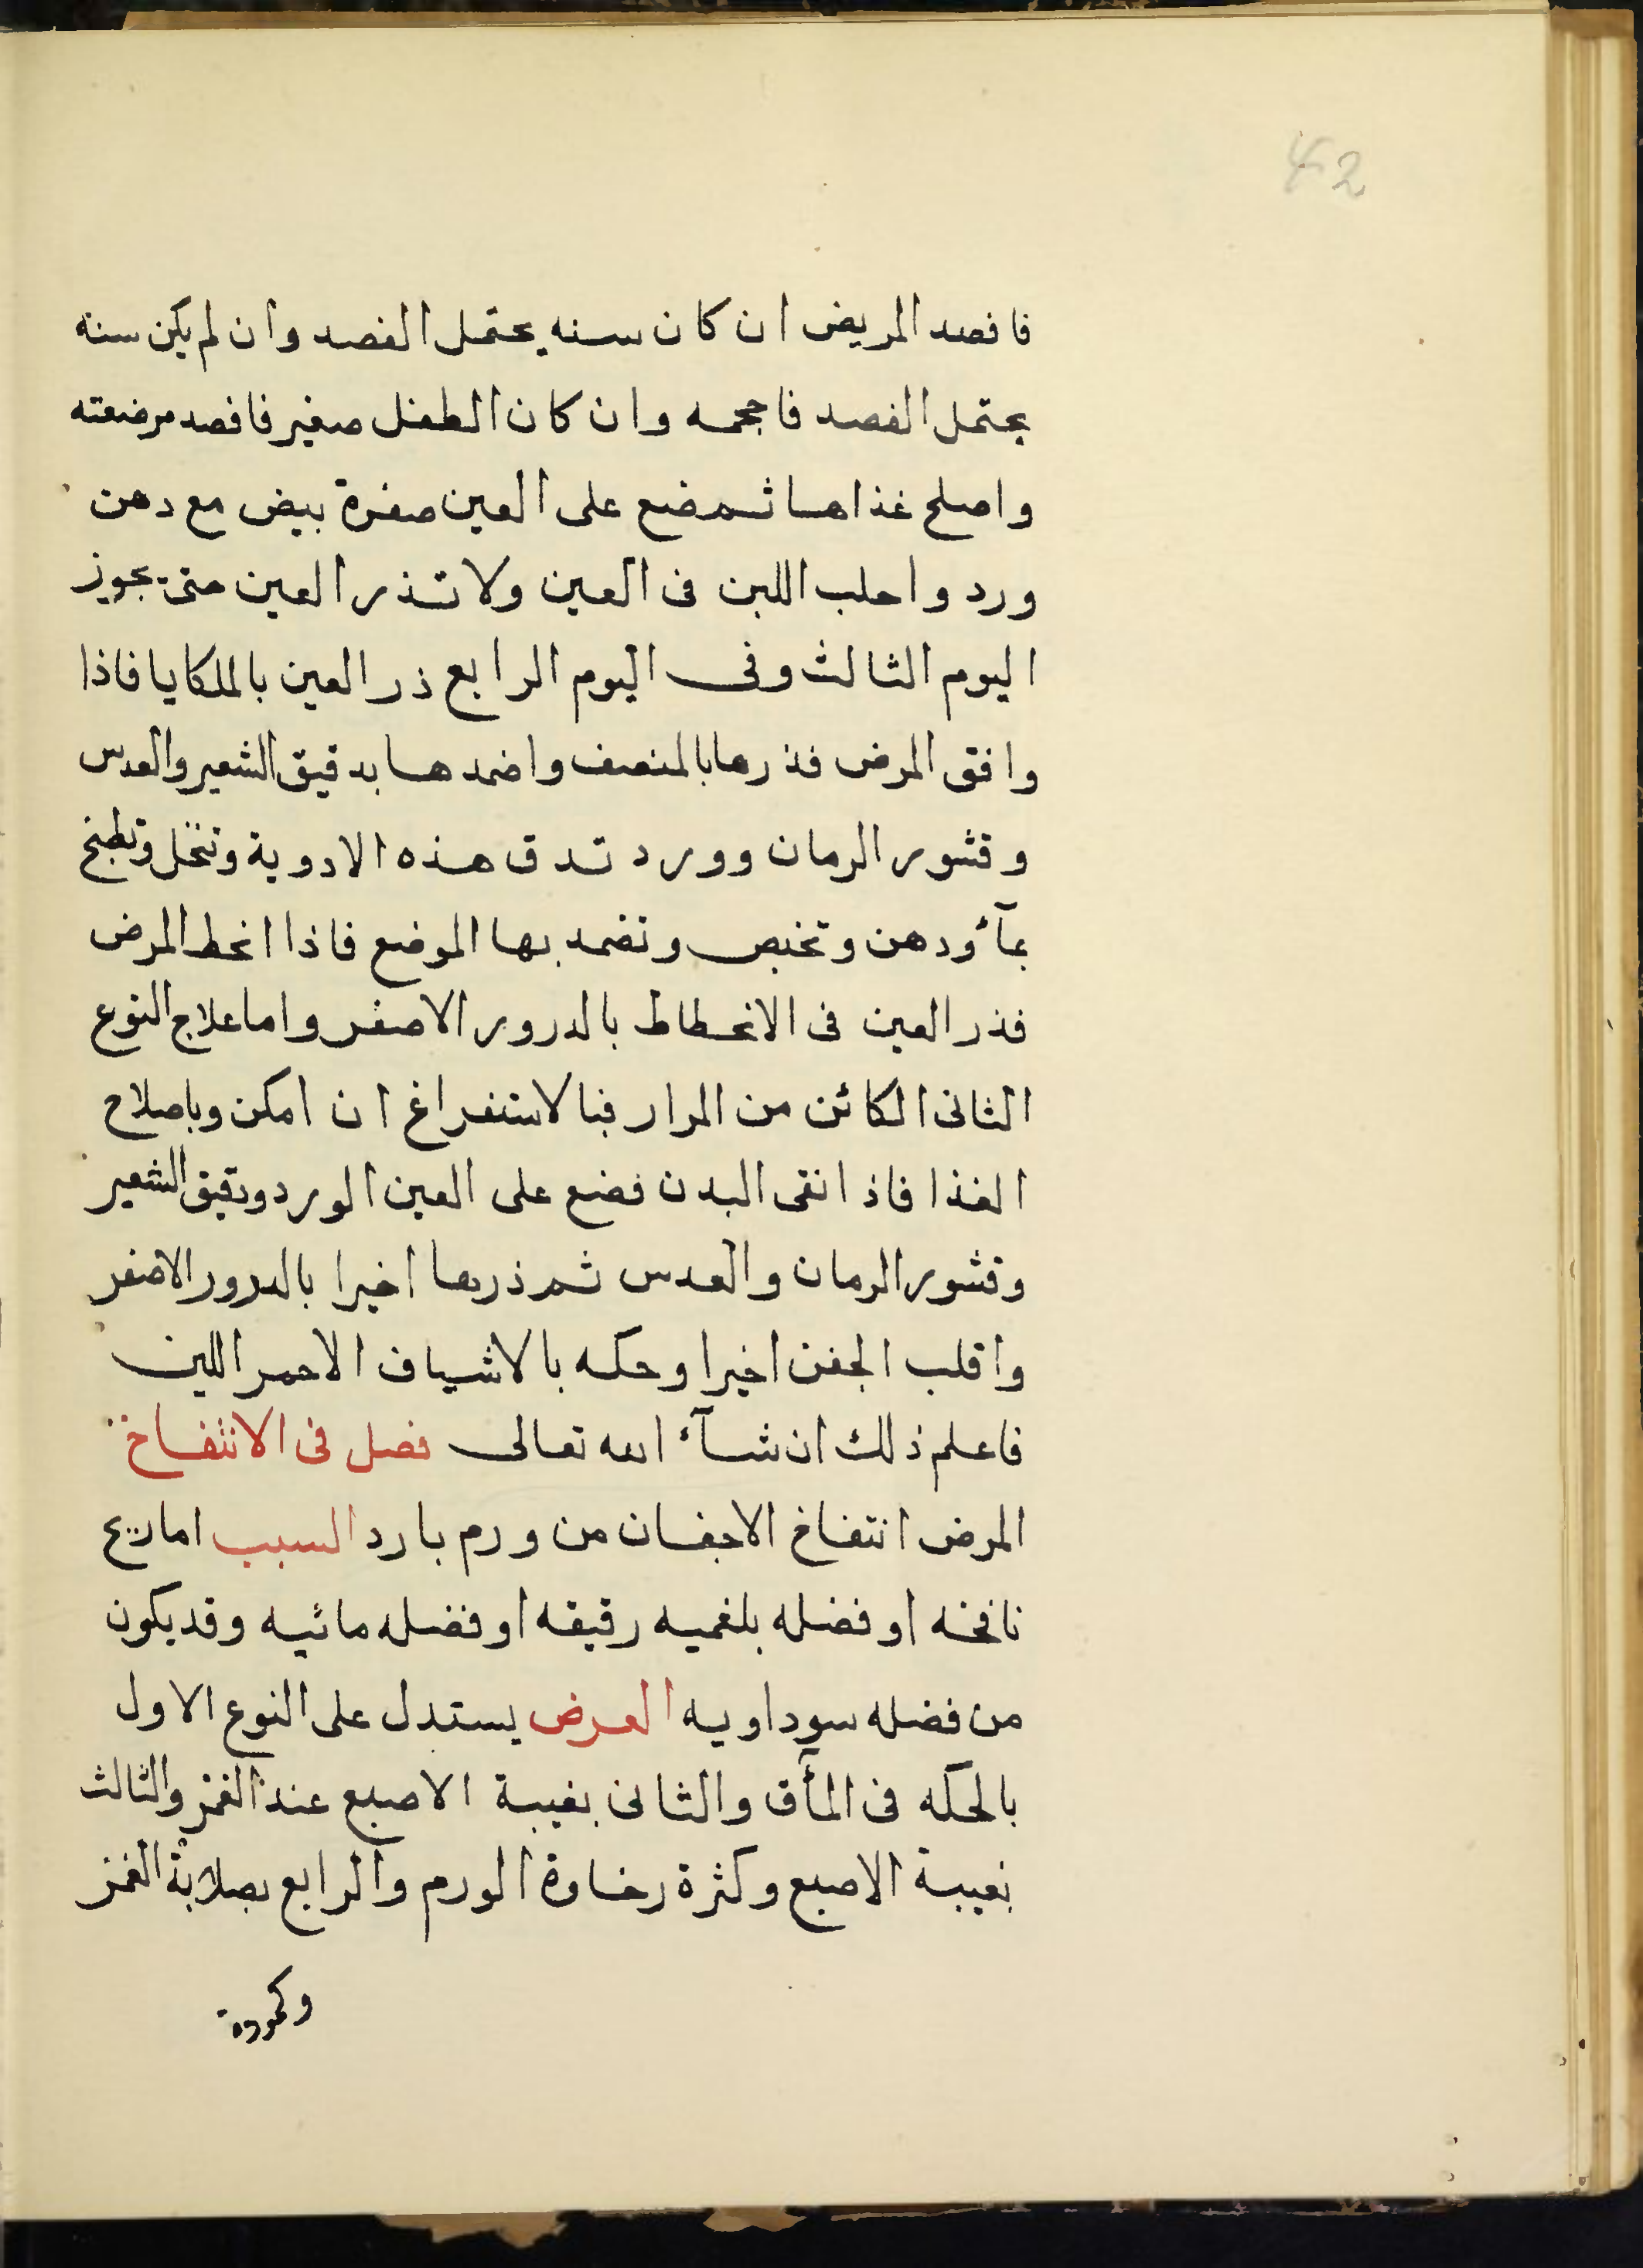 42
فافصد المريض ان كان سنه يحتمل الفصد وان لم يكن سنه
يحتمل الفصد فاحجمه وان كان الطفل صغير فافصد مرضعته
واصلح غذاها ثم ضع على العين صفرة بيض مع دهن
ورد واحلب اللبن فى العين ولا تذر العين حتى يجوز
اليوم الثالث وفى اليوم الرابع ذر العين بالملكايا فاذا
وافق المرض فذرها بالمنصف واضمدها بدقيق الشعير والعدس
وقشور الرمان وورد تدق هذه الادوية وتنخل وتطبخ
بمآء ودهن وتخبص وتضمد بها الموضع فاذا انحط المرض
فذر العين فى الانحطاط بالدرور الاصفر واما علاج النوع
الثانى الكائن من المرار فبالاستفراغ ان امكن وباصلاح
الغذا فاذا نقى البدن فضع على العين الورد ودقيق الشعير
وقشور الرمان والعدس ثم ذرها اخيرا بالدرور الاصفر
واقلب الجفن اخيرا وحكه بالاشياف الاحمر اللين
فاعلم ذلك ان شآء الله تعالى فصل فى الانتفاخ
المرض انتفاخ الاجفان من ورم بارد السبب اما ريح
نافخه او فضله بلغميه رقيقه او فضله مائيه وقد يكون
من فضله سوداويه العرض يستدل على النوع الاول
بالحكه فى المأق والثانى بغيبة الاصبع عند الغمز والثالث
بغيبة الاصبع وكثرة رخاوة الورم والرابع بصلابة الغمز
وكمودة